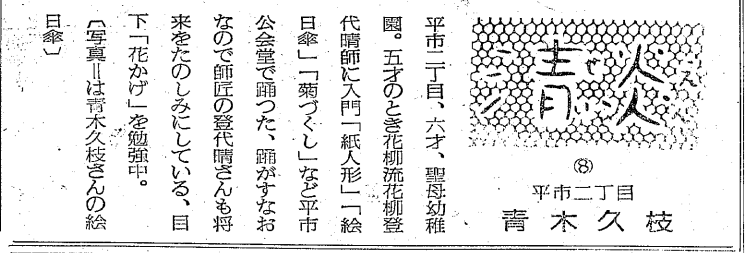 ⑧
平市二丁目
青木久枝
平市二丁目、六才、聖母幼稚
園。五才のとき花柳流花柳登
代晴師に入門「紙人形」「絵
日傘」「菊づくし」など平市
公会堂で踊つた、踊がすなお
なので師匠の登代晴さんも将
来をたのしみにしている、目
下「花かげ」を勉強中。
〔写真＝は青木久枝さんの絵
日傘〕